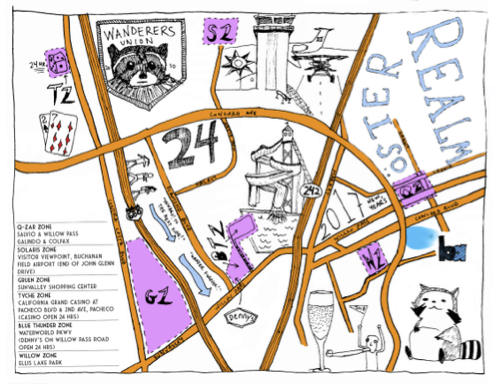 WANDERERS
UNION
20
SZ
24 HR.
TZ
2
7
CONCORD AVE
24
REALM
OSTER
242
201
NEW
YEARS
QZ
CONCORD BLVD
WILLOW PASS
BTZ
WZ
GZ
DENNY'S
Q-ZAR ZONE
SALVIO & WILLOW PASS
GALINDO & COLFAX
SOLARIS ZONE
VISITOR VIEWPOINT, BUCHANAN
FIELD AIRPORT (END OF JOHN GLENN
DRIVE)
GRUEN ZONE
SUNVALLEY SHOPPING CENTER
TYCHE ZONE
CALIFORNIA GRAND CASINO AT
PACHECO BLVD & 2ND AVE, PACHECO
(CASINO OPEN 24 HRS)
BLUE THUNDER ZONE
WATERWORLD PKWY
(DENNY'S ON WILLOW PASS ROAD
OPEN 24 HRS)
WILLOW ZONE
ELLIS LAKE PARK